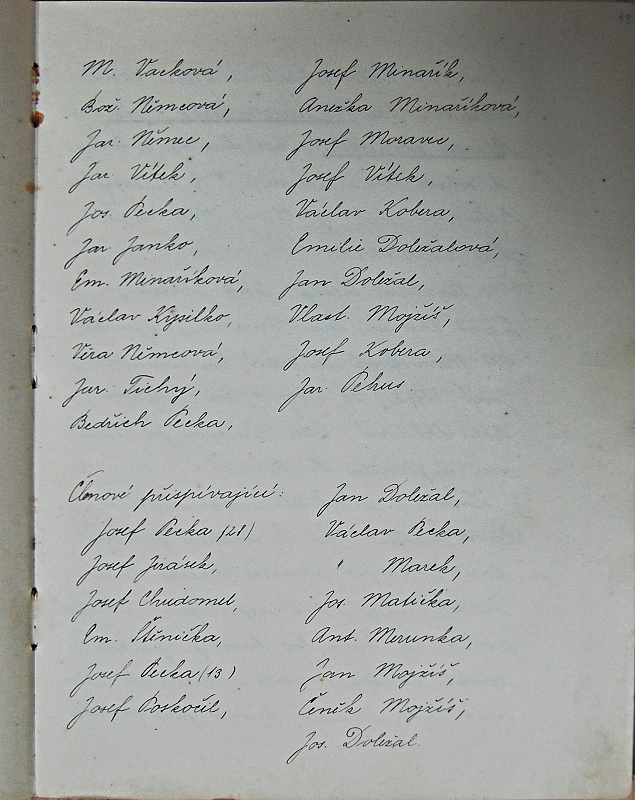 M. Vacková, Josef Minařík,
Bož. Němcová, Anežka Minaříková,
Jar. Němec, Josef Moravec,
Jar. Vítek, Josef Vítek,
Jos. Pecka, Václav Kobera,
Jar. Janko, Emilie Doležalová,
Em. Minaříková, Jan Doležal,
Václav Kysilko, Vlast. Mojžíš,
Věra Němcová, Josef Kobera,
Jar. Tichý, Jar. Pehus.
Bedřich Pecka,
Členové přispívající: Jan Doležal,
Josef Pecka (28) Václav Pecka,
Josef Jirásek, " Marek,
Josef Chudomel, Jos. Matička,
Em. Štěnička, Ant. Merunka,
Josef Pecka (13) Jan Mojžíš,
Josef Poskočil, Čeněk Mojžíš,
Jos. Doležal.